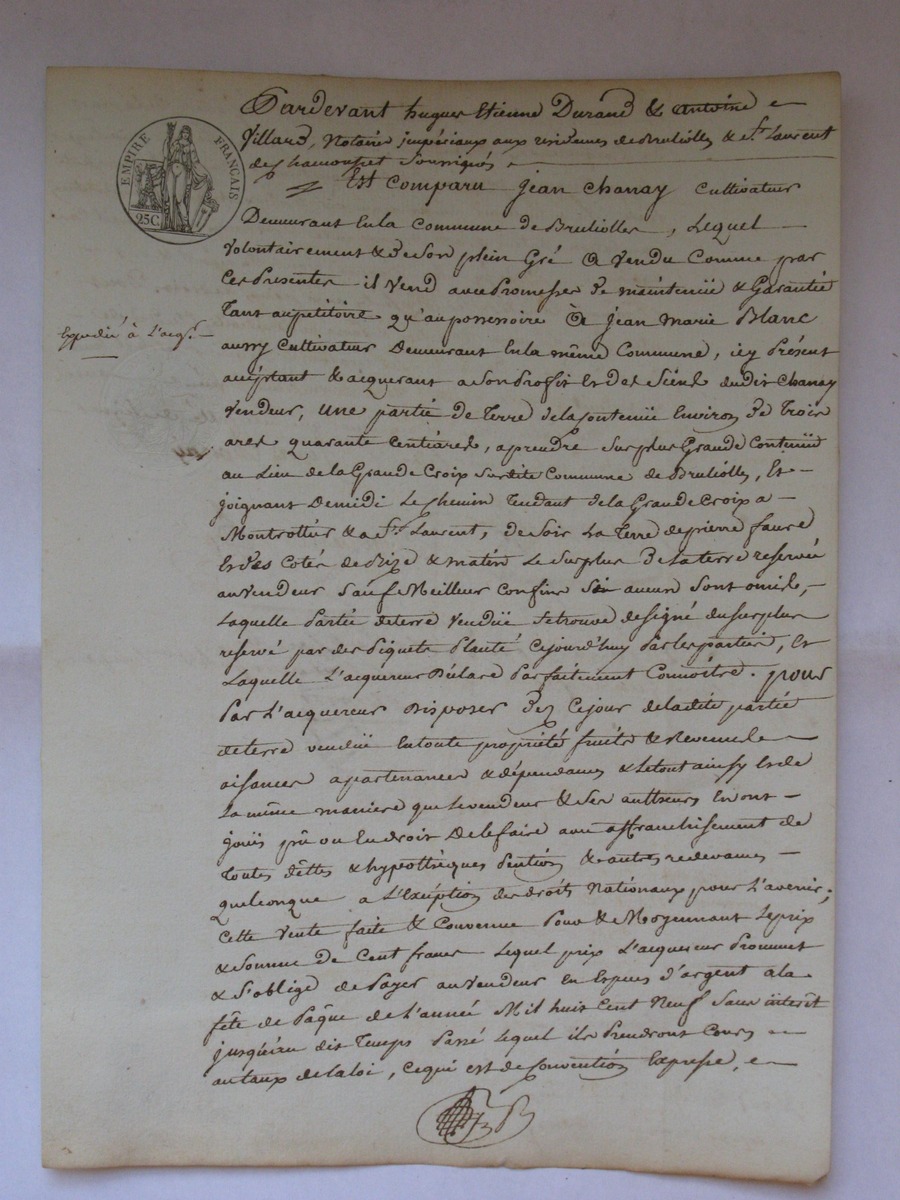 EMPIRE FRANÇAIS
25C.
Pardevant hugues Etienne Durand & antoine
Villard, Notaire jmpériaux aux residances de Bruliolles & St. Laurent
de Chamousset Soussignés
Est Comparu jean Chanay Cultivateur
Demeurant En la Commune de Brulioller, Lequel
Volontairement & de Son plein Gré a vendu Comme par
Ces Presentes il vend avec Promesses de maintenüe & Garantié
Tant au petitoire qu'au possessoire a jean marie Blanc
aussy Cultivateur Demeurant En la même Commune, icy Présent
acceptant & acquerant a Son Proffit Et des Siens dudit Chanay
Vendeur, une partié de Terre de la Contenüe Environ de Trois
ares quarante Centiares, a prendre Sur plus Grande Contenüe
au Lieu de la Grande Croix Surdite Commune de Brulliolles, Et
joignant De midi Le Chemin Tendant de la Grande Croix a
Montrottier & a St. Laurent, de Soir La Terre de pierre faure
Et des Cotés de Bize & matin Le Surplus de la terre reservée
au vendeur Sauf Meilleur Confins Si aucun Sont omis,
Laquelle Partié de terre vendüe Se trouve designé du Surplus
réservé par des Piquets Planté Cejourd'huy Par les partiés, Et
Laquelle L'acquereur Déclare Parfaitement Connoitre. pour
Par L'acquereur Disposer dez Cejour de ladite partié
de terre vendüe En toute propriété fruits & Revenus
aisances apartenances & dépendances & Le tout ainsy Et de
La même maniere que Le vendeur & Ses autheurs En ont
joüis pû ou Eu droit De le faire avec affranchisement de
Toutes dêttes & hypothèques Pention & autres redevances
quelconque a L'Exéption des droits Nationaux pour L'avenir;
Cette Vente faite & Convenue Pour & Moyennant Le prix
& Somme de Cent francs Lequel prix L'acquereur Prommet
& S'oblige de Payer au Vendeur en Espèces d'argent a la
fête de Pâque de L'année Mil huit Cent Neuf Sans intérêt
jusqu'au dit Temps Passé Lequel ils Prendront Cours
au taux de la loi, Ce qui est de Convention Expresse,
Expedié à L'acqr.